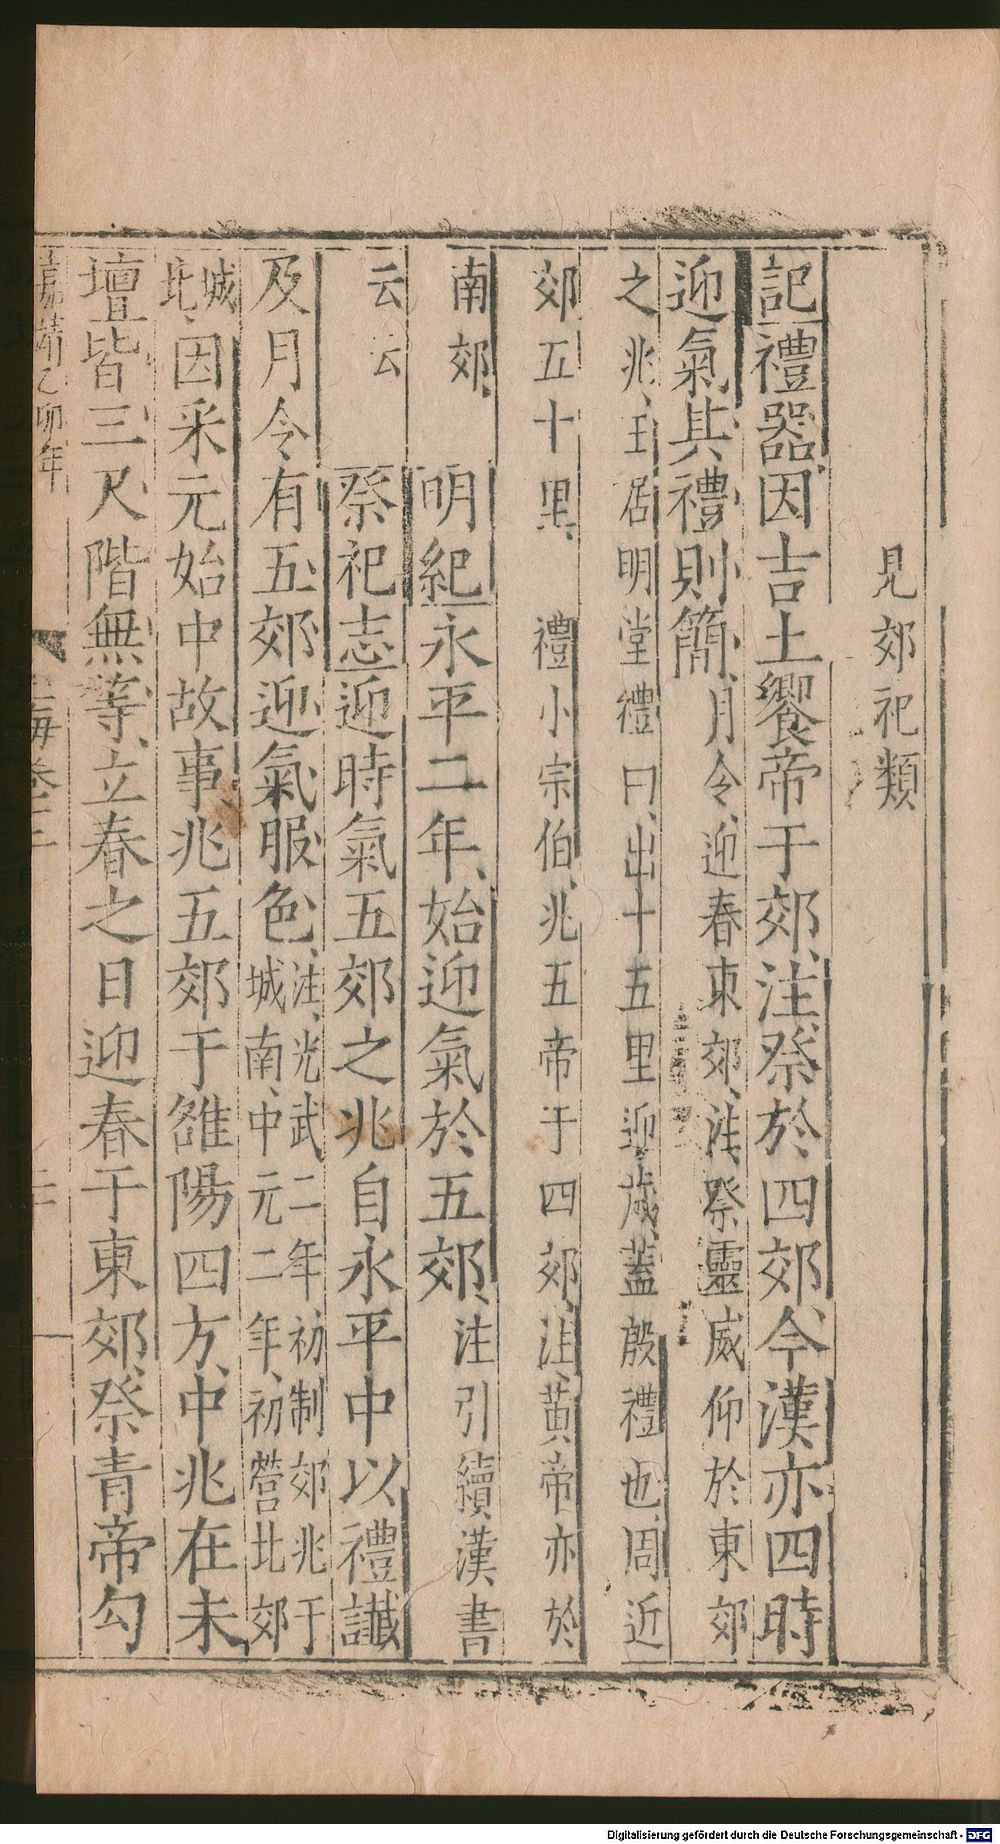 見郊祀類
記禮器因吉土饗帝于郊注祭於四郊今漢亦四時
迎氣其禮則簡月令迎春東郊注祭靈威仰於東郊
之兆王居明堂禮曰出十五里迎歲蓋殷禮也周近
郊五十里 禮小宗伯兆五帝于四郊注黃帝亦於
南郊 明紀永平二年始迎氣於五郊注引續漢書
云云 祭祀志迎時氣五郊之兆自永平中以禮讖
及月令有五郊迎氣服色注光武二年初制郊兆于
城南中元二年初營北郊
城北因采元始中故事兆五郊于雒陽四方中兆在未
壇皆三尺階無等立春之日迎春于東郊祭青帝勾
嘉靖乙卯年
Digitalisierung gefördert durch die Deutsche Forschungsgemeinschaft - DFG